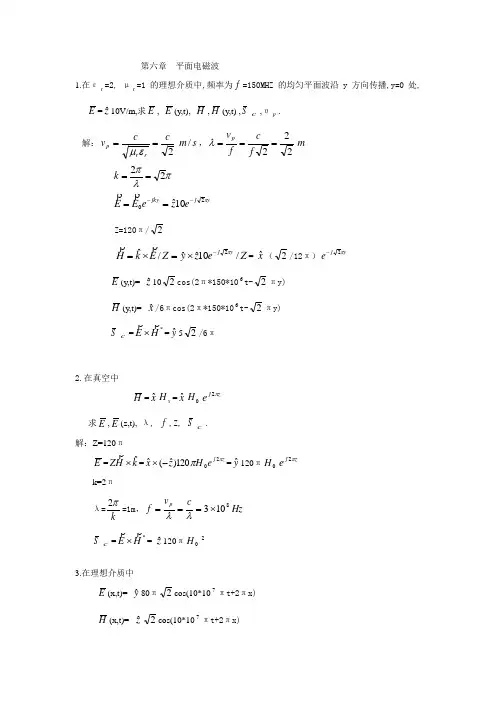 第六章 平面电磁波
1.在ε_r=2, μ_r=1 的理想介质中,频率为f=150MHZ 的均匀平面波沿 y 方向传播,y=0 处,
E̅=ẑ10V/m,求E̅, E̅(y,t), H̅,H̅(y,t),S̅_c,υ_p.
解:v_p = c/√(μ_rε_r) = c/√2 m/s, λ = v_p/f = c/(√2 f) = 2/√2 m
k = 2π/λ = √2π
E̅ = E̅_0e^{-jky} = ẑ10e^{-j√2πy}
Z=120π/√2
H̅ = k̂×E̅/Z = ŷ×ẑ10e^{-j√2πy}/Z= x̂(√2/12π)e^{-j√2πy}
E̅(y,t)= ẑ10√2cos(2π*150*10^6t-√2πy)
H̅(y,t)= x̂/6πcos(2π*150*10^6t-√2πy)
S̅_c=E̅×H̅^*=ŷ5√2/6π
2.在真空中
求E̅,E̅(z,t), λ, f,Z, S̅_c.
解:Z=120π
E̅=ZH̅×k̂=x̂×(-ẑ)120πH_0e^{j2πz}=ŷ120πH_0e^{j2πz}
k=2π
λ=2π/k=1m, f = v_p/λ = c/λ = 3×10^8Hz
3.在理想介质中
E̅(x,t)= ŷ80π√2cos(10*10^7πt+2πx)
H̅(x,t)= ẑ√2cos(10*10^7πt+2πx)